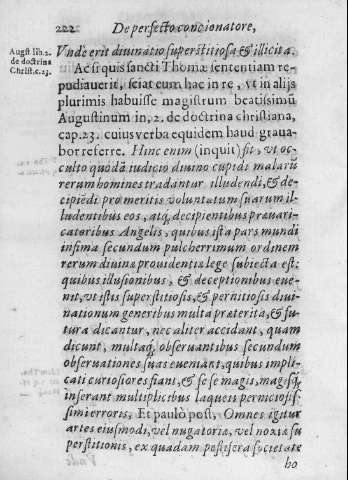 222 De perfecto concionatore,
Augst lib. 2. de doctrina Christ. c. 23.
Vnde erit diuinatio superstitiosa & illicita.
Ac si quis sancti Thomæ sententiam re-
pudiauerit, sciat eum hac in re, vt in alijs
plurimis habuisse magistrum beatissimũ
Augustinum in, 2. de doctrina christiana,
cap. 23. cuius verba equidem haud graua-
bor referre. Hinc enim (inquit) fit, vt oc-
culto quodã iudicio diuino cupidi malarũ
rerum homines tradantur illudendi, & de-
cipiẽdi pro meritis voluntatum suarum il-
ludentibus eos, atq; decipientibus præuari-
catoribus Angelis, quibus ista pars mundi
infima secundum pulcherrimum ordinem
rerum diuinæ prouidentiæ lege subiecta est:
quibus illusionibus, & deceptionibus eue-
nit, vt istis superstitiosis, & pernitiosis diui-
nationum generibus multa præterita, & fu-
tura dicantur, nec aliter accidant, quam
dicunt, multaq; obseruantibus secundum
obseruationes suas eueniant, quibus impli-
cati curiosiores fiant, & se se magis, magisq;
inserant multiplicibus laqueis perniciosis-
simi erroris, Et paulò post, Omnes igitur
artes eiusmodi, vel nugatoriæ, vel noxiæ su
perstitionis, ex quadam pestifera societate
ho